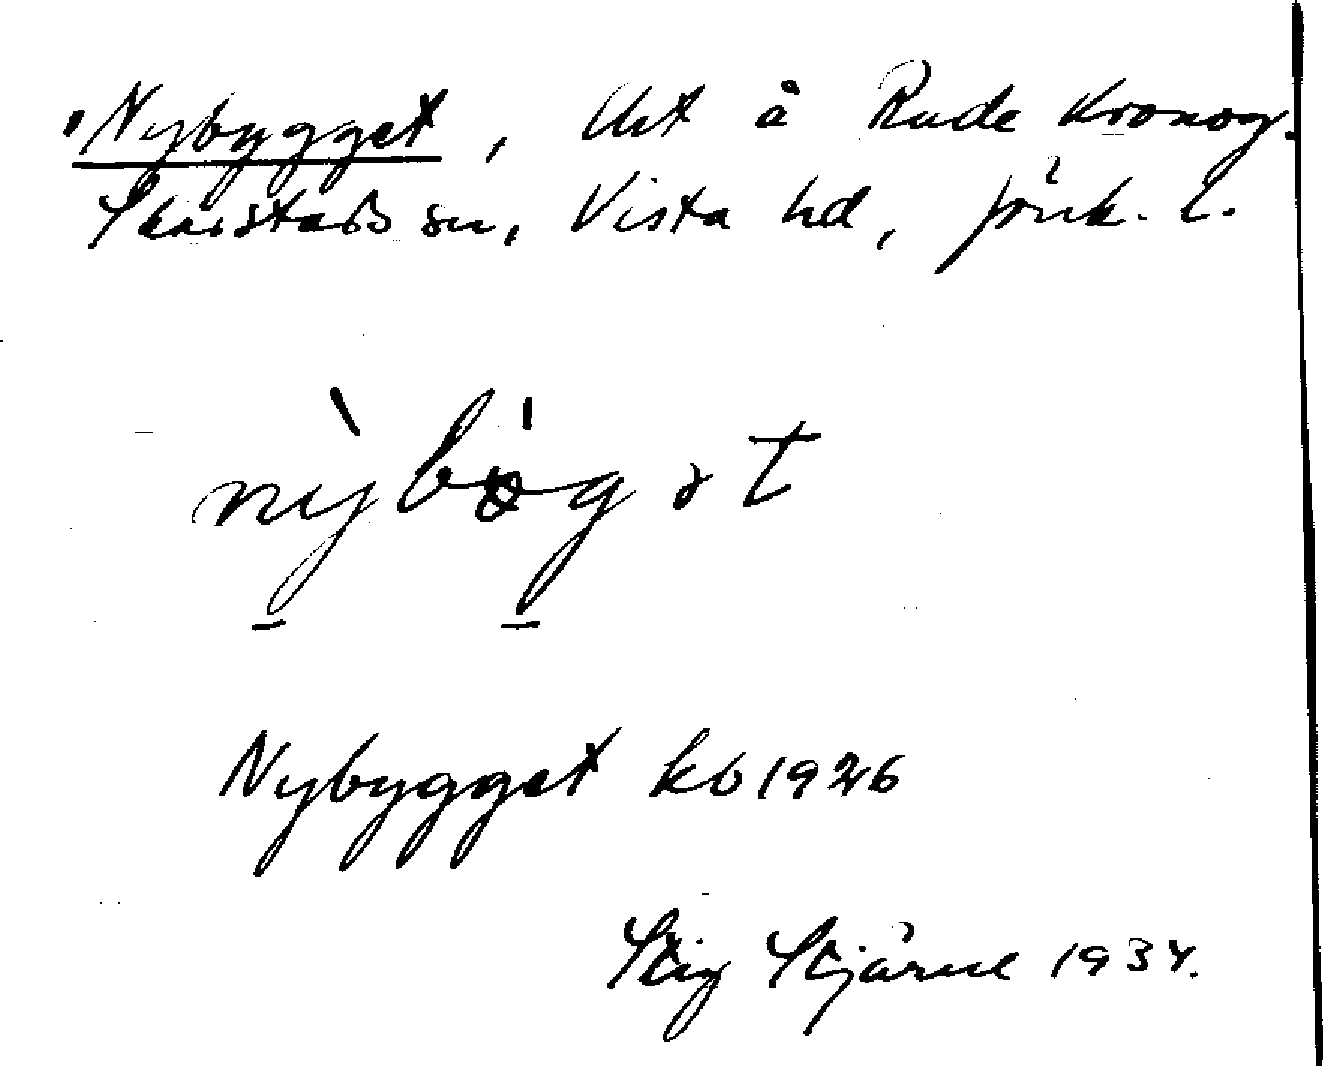 'Nybygget, lht å Rude Kronog.
Skärstads sn, Vista hd, Jönk. l.
nỳbø̍gət
Nybygget kb 1926
Stig Stjärne 1934.